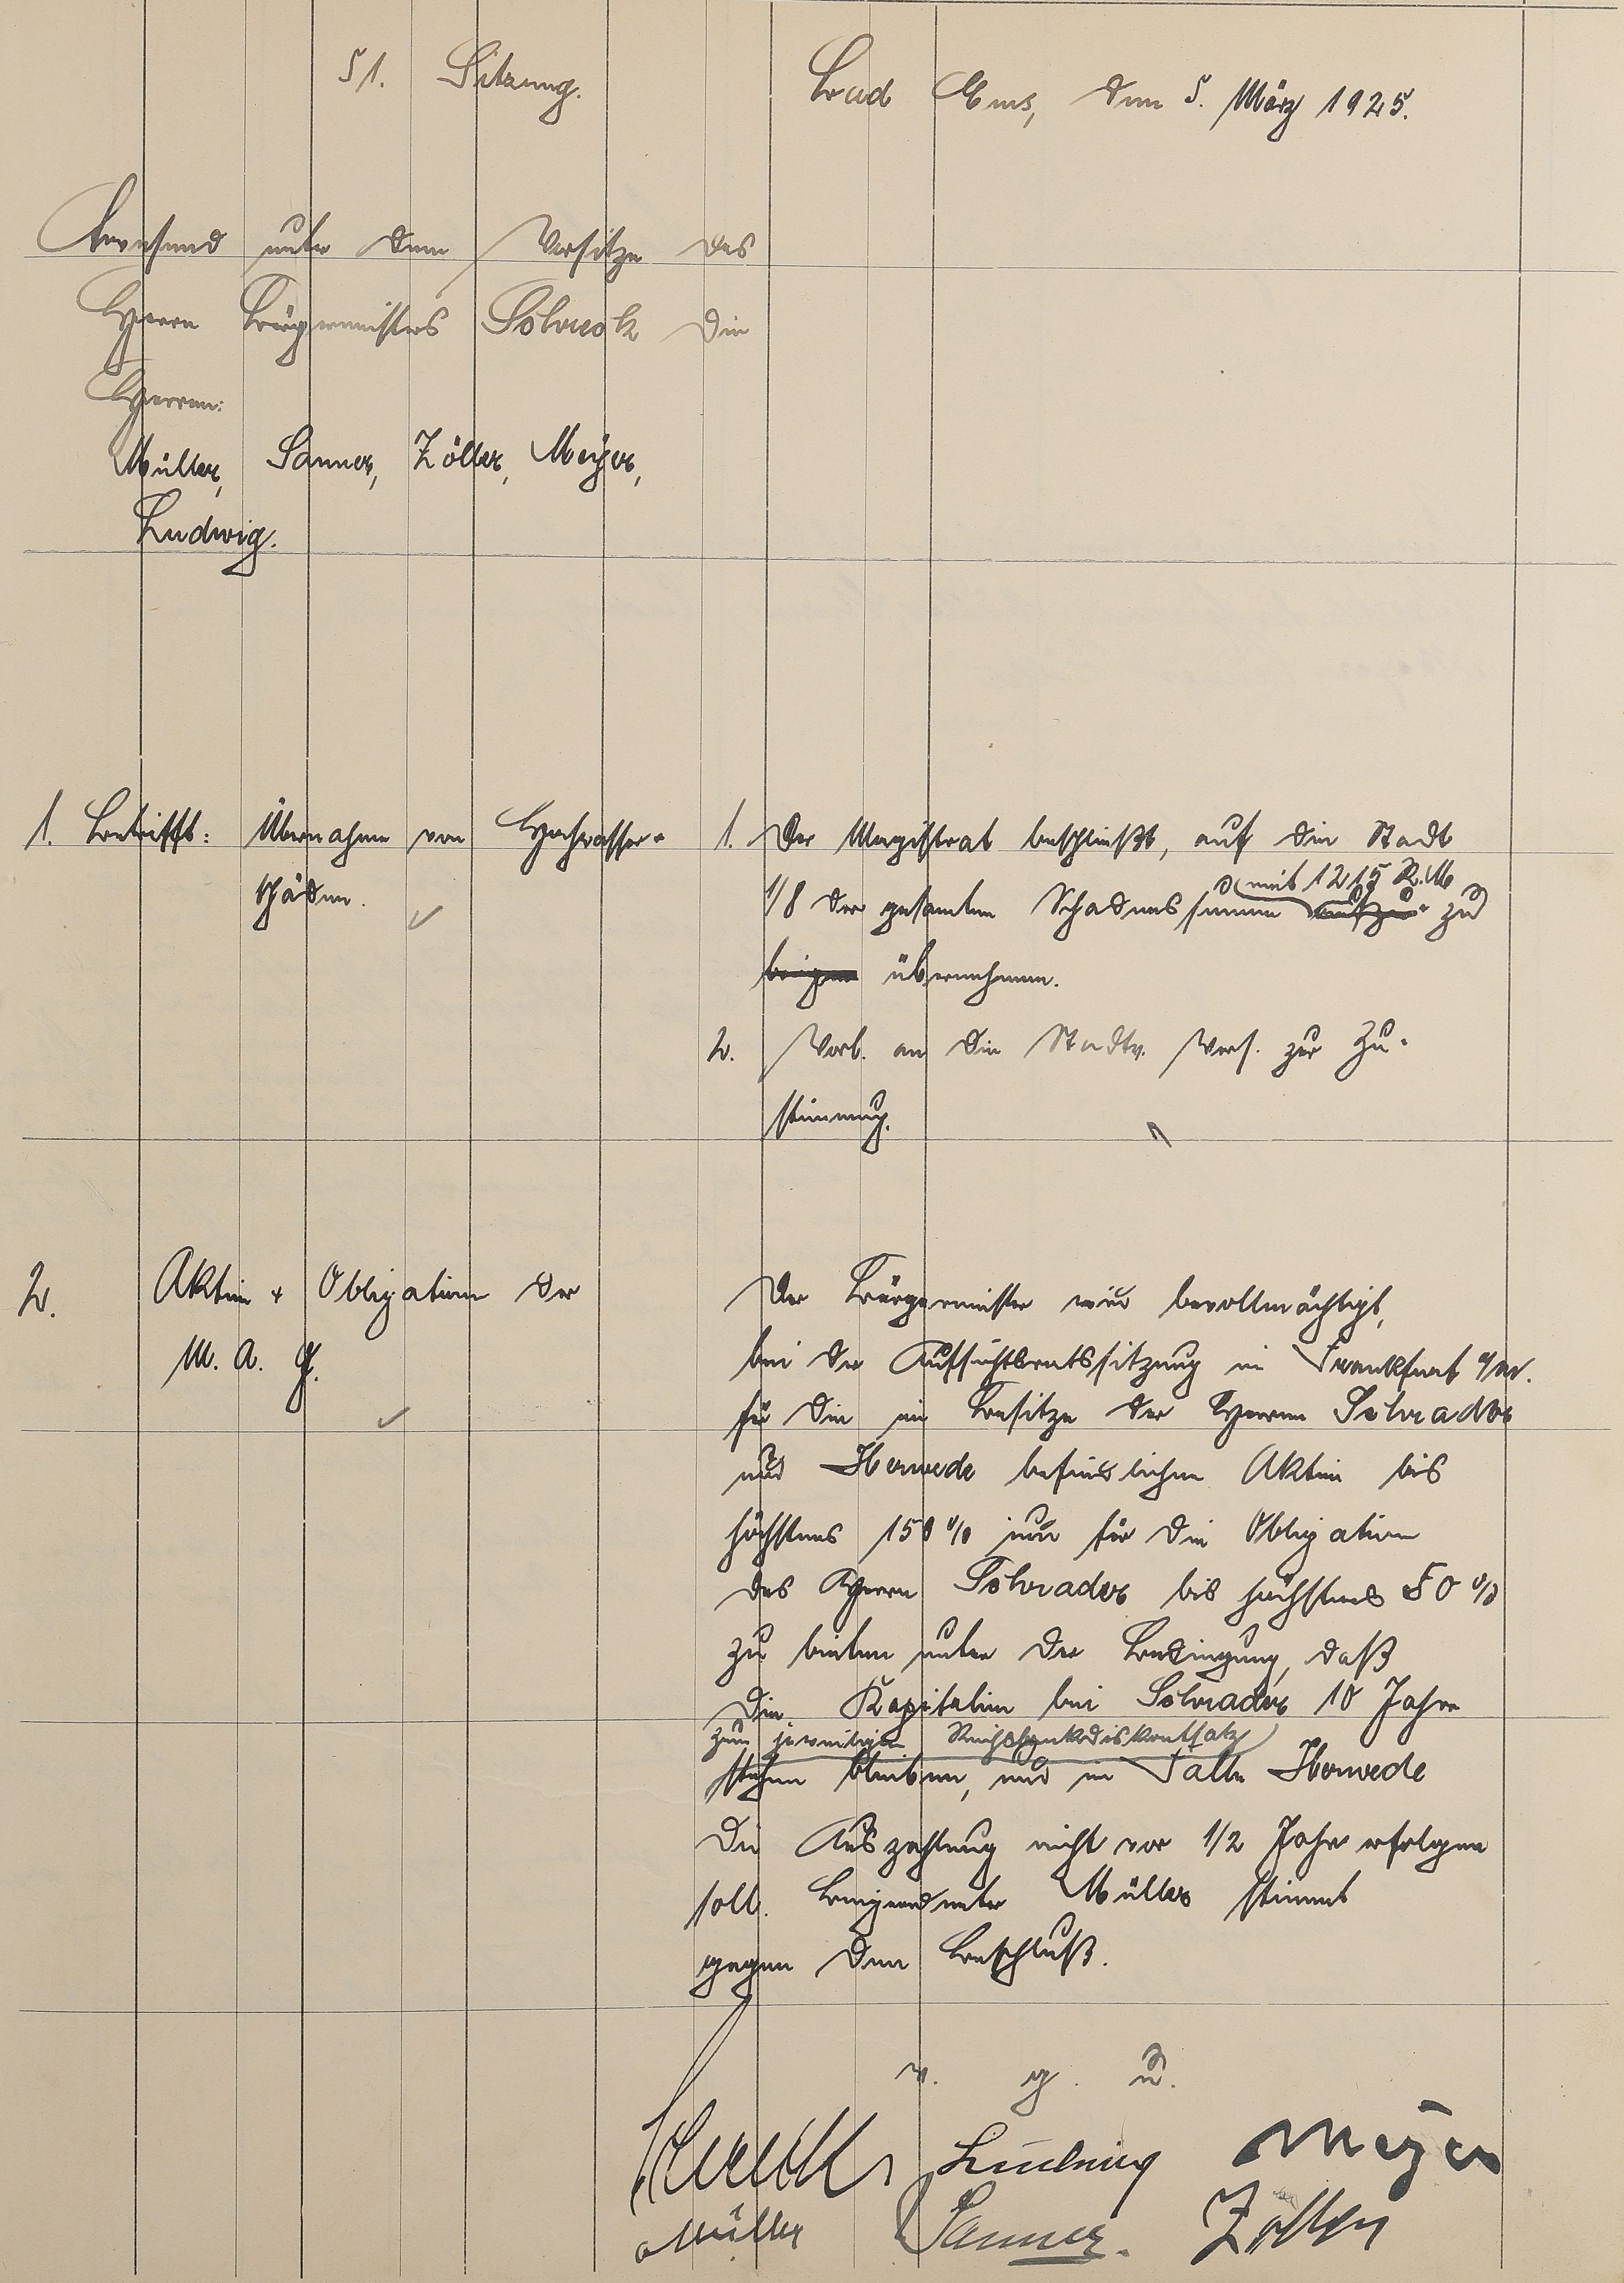 51. Sitzung.
Bad Ems, den 5. März 1925.
Anwesend unter dem Vorsitze des
Herrn Bürgermeisters Schreck die
Herren:
Müller, Sanner, Zöller, Meyer,
Ludwig.
1. Betrifft: Übernahme von Hochwasser-
schäden.
1. Der Magistrat beschließt, auf die Stadt
mit 1215 R.M
1/8 der gesamten Schadenssumme zu
übernehmen.
2. Vorl. an die Stadtv. Vers. zur Zu-
stimmung.
2. Aktien + Obligationen der
M. A. G.
Der Bürgermeister wird bevollmächtigt,
bei der Aufsichtsratssitzung in Frankfurt a/M.
für die im Besitze der Herren Schrader
und Herwede befindlichen Aktien bis
höchstens 150 % und für die Obligationen
des Herrn Schrader bis höchstens 50 %
zu bieten unter der Bedingung, daß
die Kapitalien bei Schrader 10 Jahre
zum jeweiligen Reichsbankdiskontsatz
stehen bleiben, und im Falle Herwede
die Auszahlung nicht vor 1/2 Jahr erfolgen
soll. Beigeordneter Müller stimmt
gegen den Beschluß.
v. g. u.
Schreck Ludwig Meyer
Müller Sanner. Zöller